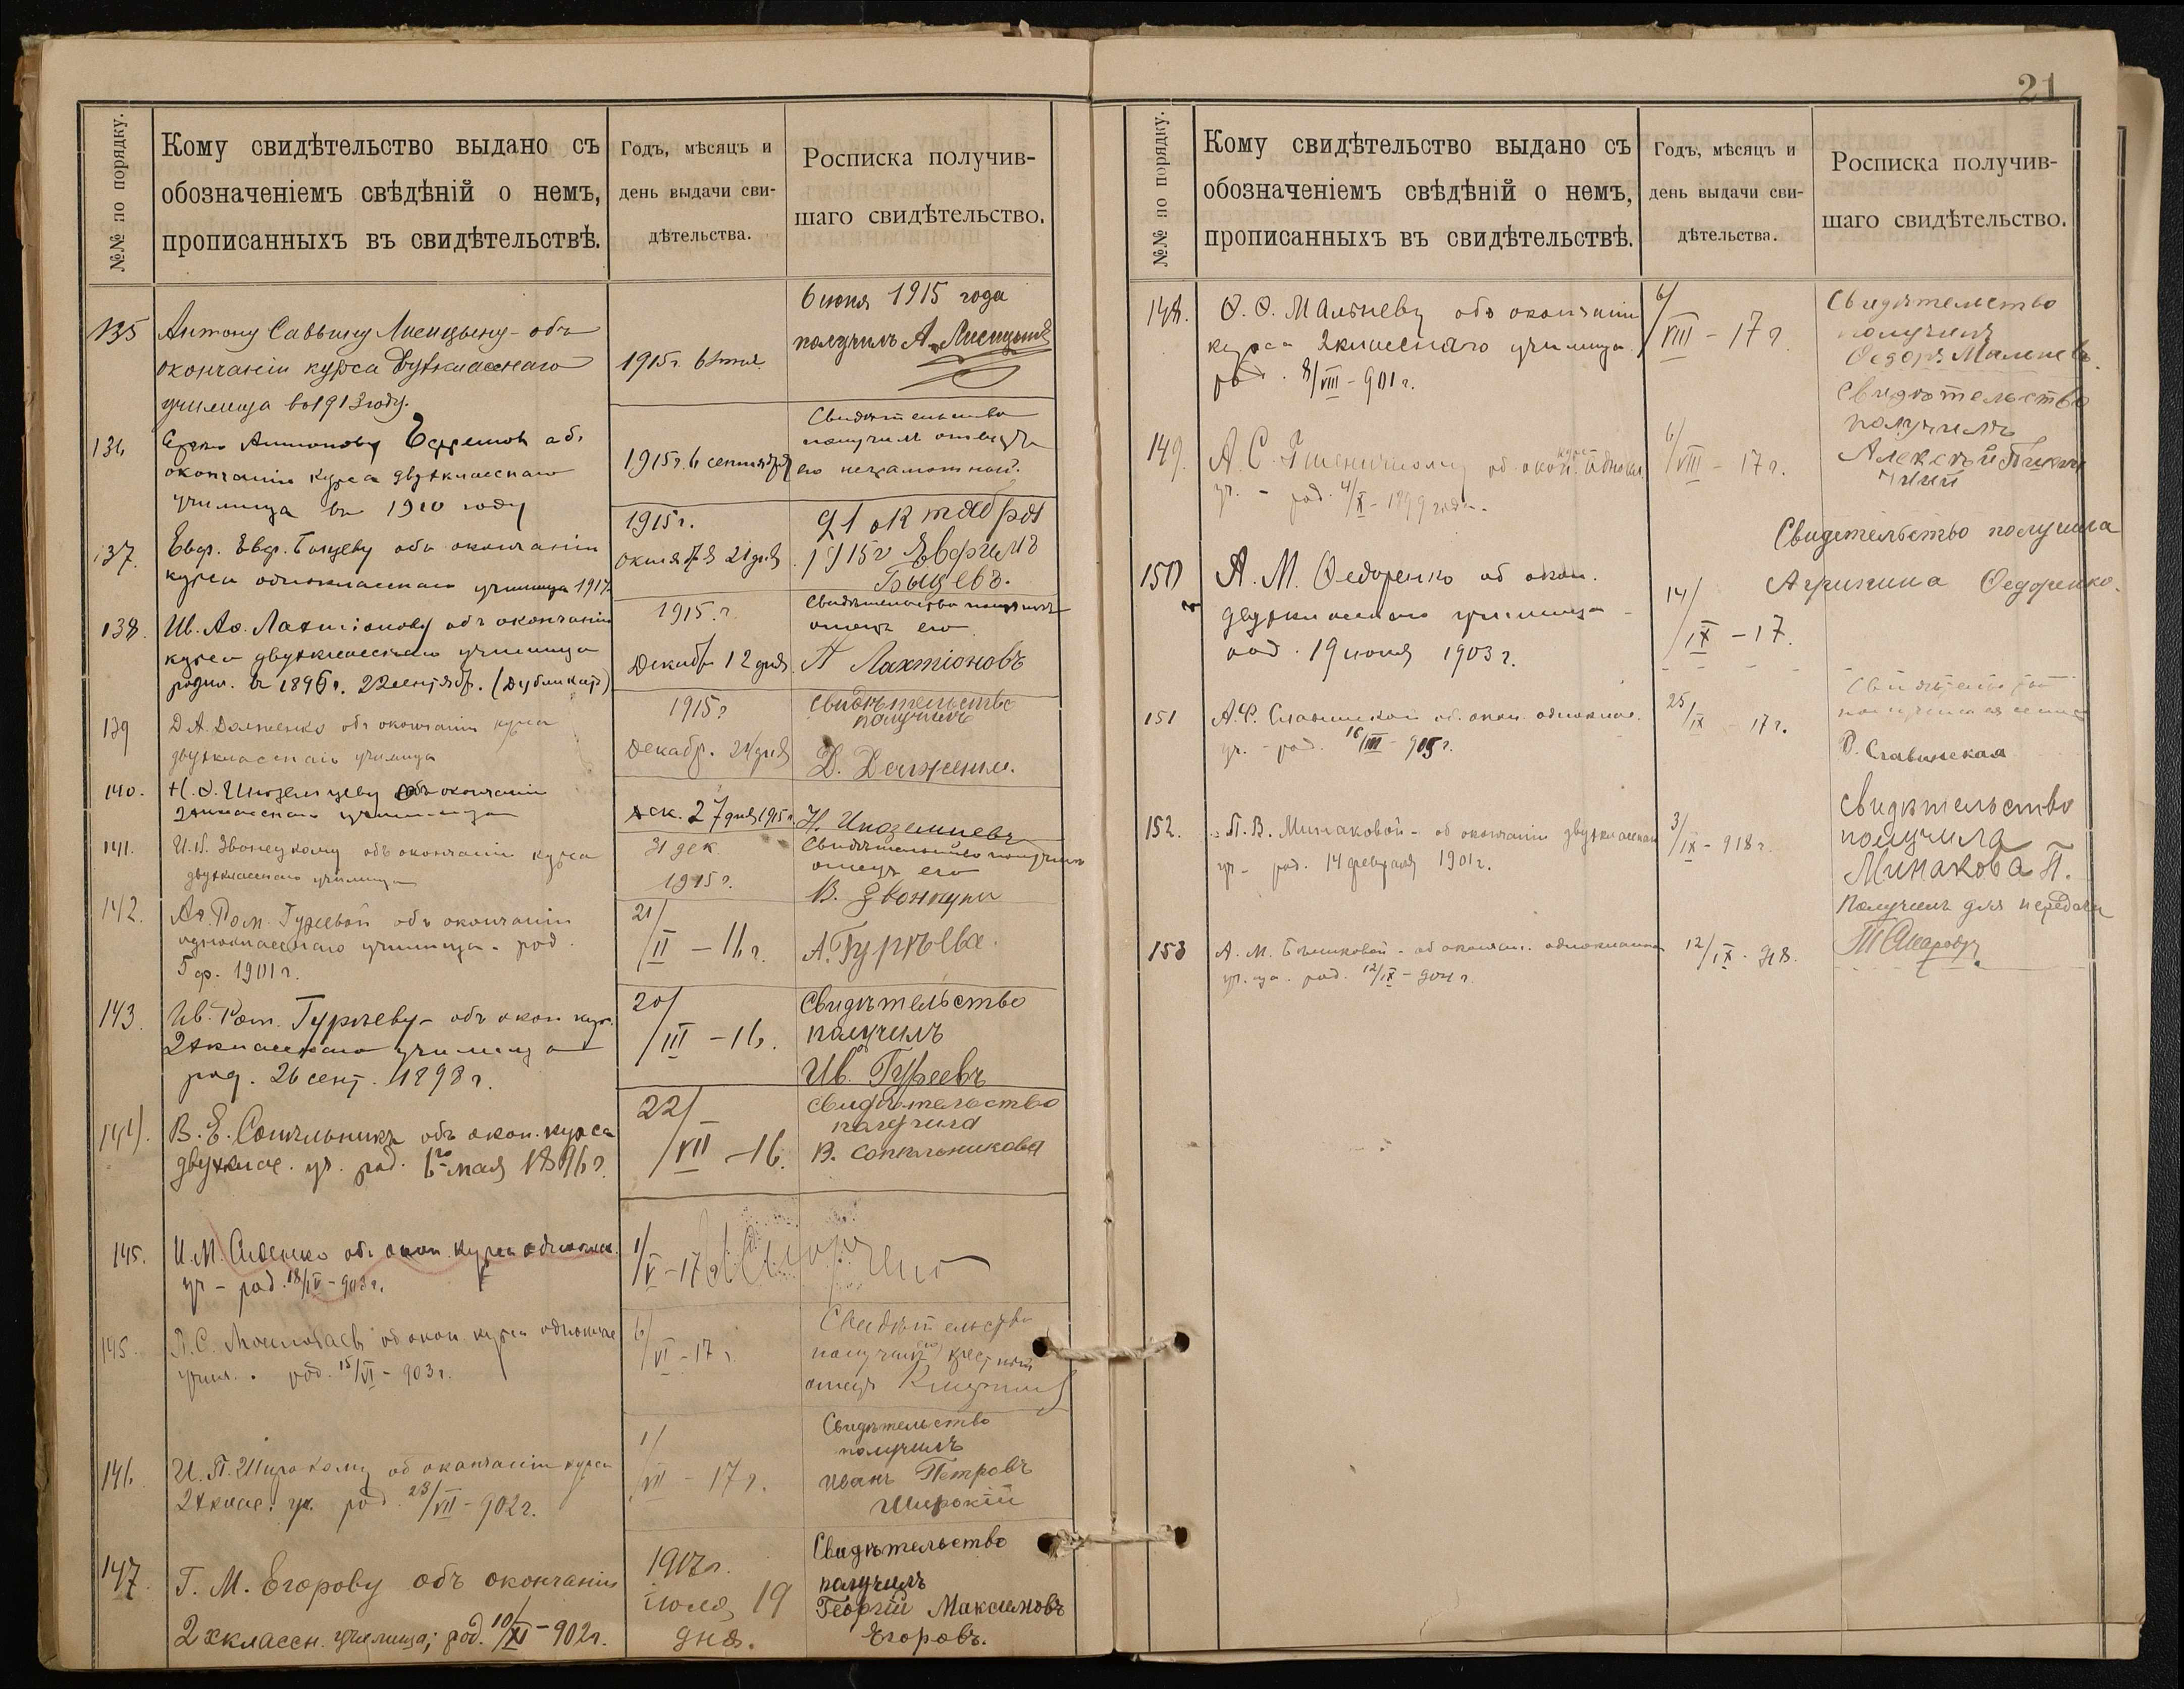 №№ по порядку.
Кому свидѣтельство выдано съ
обозначеніемъ свѣдѣній о немъ,
прописанныхъ въ свидѣтельствѣ.
Годъ, мѣсяцъ и
день выдачи сви-
дѣтельства.
Росписка получив-
шаго свидѣтельство.
135
Антону Саввичу Лисицыну - объ
окончаніи курса двухкласснаго
училища въ 1913 году.
1915 г. 6 іюня.
6 июня 1915 года
получилъ А. Лисицынъ
136
Антонову объ
окончаніи курса двухкласснаго
училища въ 1910 году
1915 г. 6 сентября
Свидѣтельство
получилъ отецъ
его неграмотный.
137.
Евф. Евф. Быцеву объ окончаніи
курса однокласснаго училища
1915 г.
октября 21 дня
21 октября
1915 г Евфимъ
Быцевъ.
138.
Ив. Аф. Лахтіонову объ окончаніи
курса двухкласснаго училища
родил. въ 1896 г. 22 сентяб. (Дубликатъ)
1915 г.
Декабр 12 дня
Свидѣтельство получилъ
отецъ его
А Лахтіоновъ
139
Д. А. Долженко объ окончаніи курса
двухкласснаго училища
1915 г
Декабр. 21 дня
Свидѣтельство
получилъ
Д. Долженко.
140.
Н. Иноземцеву объ окончаніи
2хкласснаго училища
дек. 27 дня 1915 г.
Н. Иноземцевъ
141.
И. В. Звонецкому объ окончаніи курса
двухкласснаго училища
31 дек
1915 г.
Свидѣтельство получилъ
отецъ его
В.
142.
Ан. Ром. Гурѣевой объ окончаніи
однокласснаго училища - род.
5 ф. 1901 г.
21/II - 16 г.
А. Гурѣева.
143.
Ив. Ром. Гурѣеву - объ окон. кур.
2хкласснаго училища
род. 26 сент. 1898 г.
20/III - 16 г.
Свидѣтельство
получилъ
Ив. Гурѣевъ
144.
В. Е. Сопѣльникъ объ окон. курса
двухклас. уч. род. 6го мая 1896 г.
22/VII - 16.
Свидѣтельство
получила
В. Сопельникова
145.
И. М. объ окон. курса однокласс.
уч - род. 18/IV - 903 г.
1/V - 17
145.
П. С. объ окон. курса одноклас
учил. род. 15/VI - 903 г.
6/VI - 17 г.
Свидѣтельство
получилъ крестный
отецъ
146
И. П. Широкому об окончаніи курса
2хклас. уч. род. 23/VII - 902 г.
1/VII - 17 г.
Свидѣтельство
получилъ
Иванъ Петровъ
Широкій
147.
Г. М. Егорову объ окончаніи
2хклассн. училища; род. 10/XI - 902 г.
1917 г.
іюля 19
дня.
Свидѣтельство
получилъ
Георгій Максимовъ
Егоровъ.
21
№№ по порядку.
Кому свидѣтельство выдано съ
обозначеніемъ свѣдѣній о немъ,
прописанныхъ въ свидѣтельствѣ.
Годъ, мѣсяцъ и
день выдачи сви-
дѣтельства.
Росписка получив-
шаго свидѣтельство.
148.
Ѳ. Ѳ. Мальневу объ окончаніи
курса 2хкласснаго училища
род. 8/VIII - 901 г.
6/VIII - 17 г
Свидѣтельство
получилъ
Ѳедоръ Мальневъ.
149.
А. С. Пшеничному об окон. курс. однокл.
уч. - род. 4/X - 1899 года.
6/VIII - 17 г.
Свидѣтельство
получилъ
Алексѣй
150
А. М. Ѳедоренко об окон.
двухкласснаго училища -
род. 19 июня 1903 г.
14/IX - 17.
Свидетельство получила
Агрипина Ѳедоренко.
151
А. Ф. Славинской об. окон. одноклас.
уч. - род. 16/III - 905 г.
25/IX - 17 г.
Славинская
152.
П. В. Минаковой - об окончаніи двухклассн
уч - род. 14 февраля 1901 г.
3/IX - 918 г.
Свидѣтельство
получила
Минакова П.
153
А. М. Бѣликовой - об окончан. одноклассн
уч-ща. род. 12/IX - 904 г.
12/IX - 918.
Получилъ для передачи